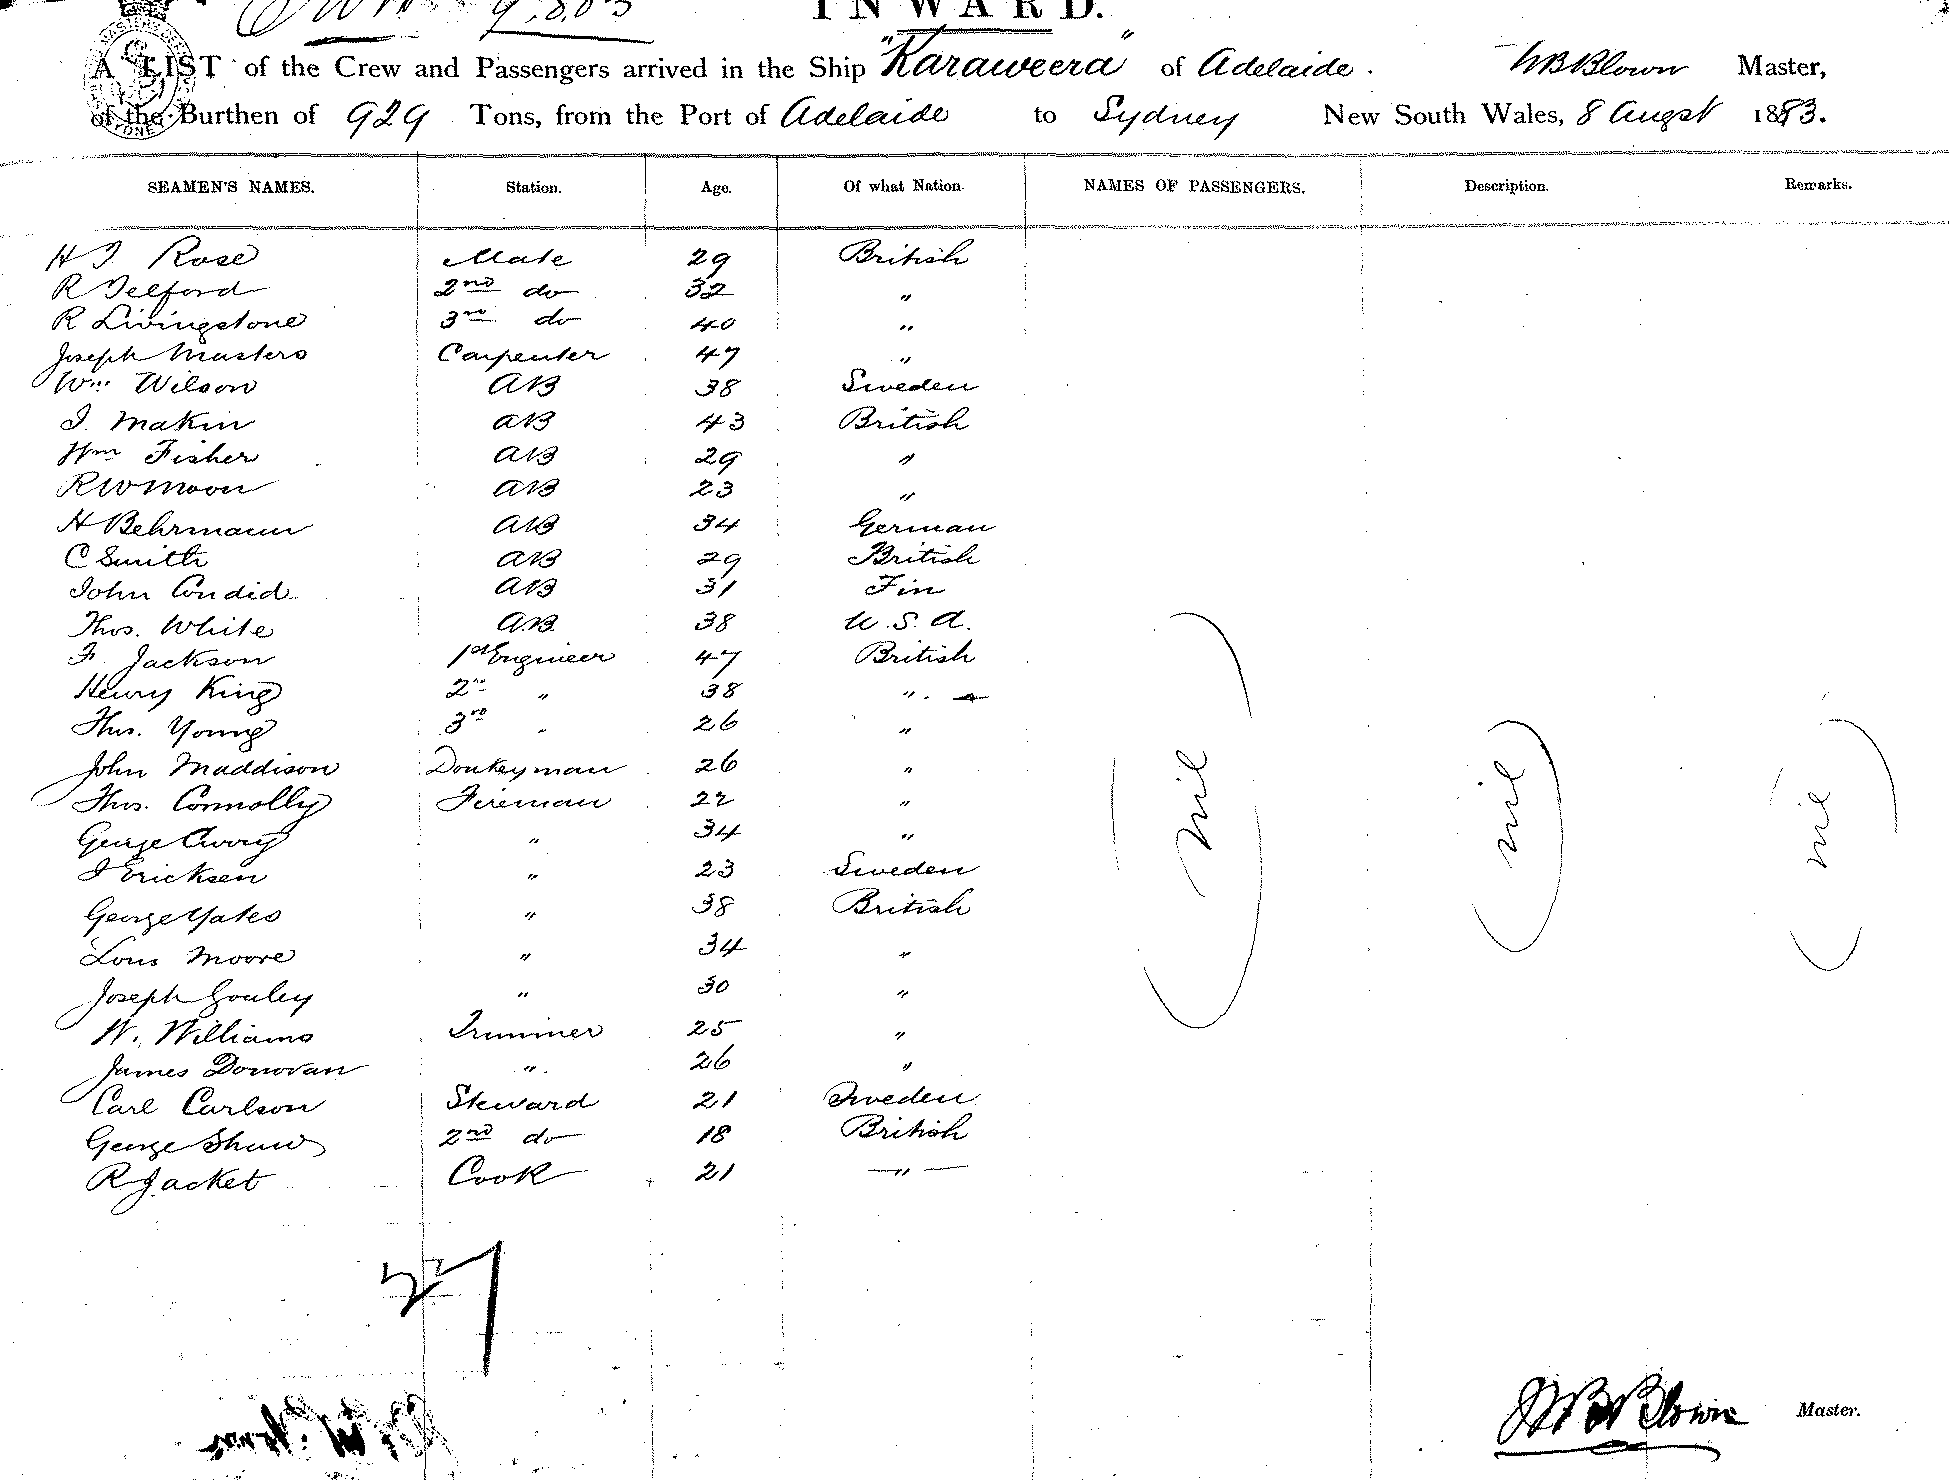 9.8.83
INWARD.
A LIST of the Crew and Passengers arrived in the Ship "Karaweera" of Adelaide. WBBlown Master,
of the Burthen of 929 Tons, from the Port of Adelaide to Sydney New South Wales, 8 Augst 1883.
SEAMEN'S NAMES. Station. Age. Of what Nation. NAMES OF PASSENGERS. Description. Remarks.
H J Rose Mate 29 British
R Telford 2nd do 32 "
R Livingstone 3rd do 40 "
Joseph Masters Carpenter 47 "
Wm Wilson AB 38 Sweden
J. Makin AB 43 British
Wm Fisher AB 29 "
R W Moon AB 23 "
H Behrmann AB 34 German
C Smith AB 29 British
John Condid AB 31 Fin
Thos. White A.B. 38 U.S.A.
F. Jackson 1st Engineer 47 British
Henry King 2nd " 38 "
Thos. Young 3rd " 26 "
John Maddison Donkeyman 26 "
Thos. Connolly Fireman 22 "
George Avory " 34 "
J Ericksen " 23 Sweden
George Yates " 38 British
Louis Moore " 34 "
Joseph Gouley " 30 "
W. Williams Trimmer 25 "
James Donovan " 26 "
Carl Carlson Steward 21 Sweden
George Shaw 2nd do 18 British
R Jacket Cook 21 "
nil nil nil
27
WBBlown Master.